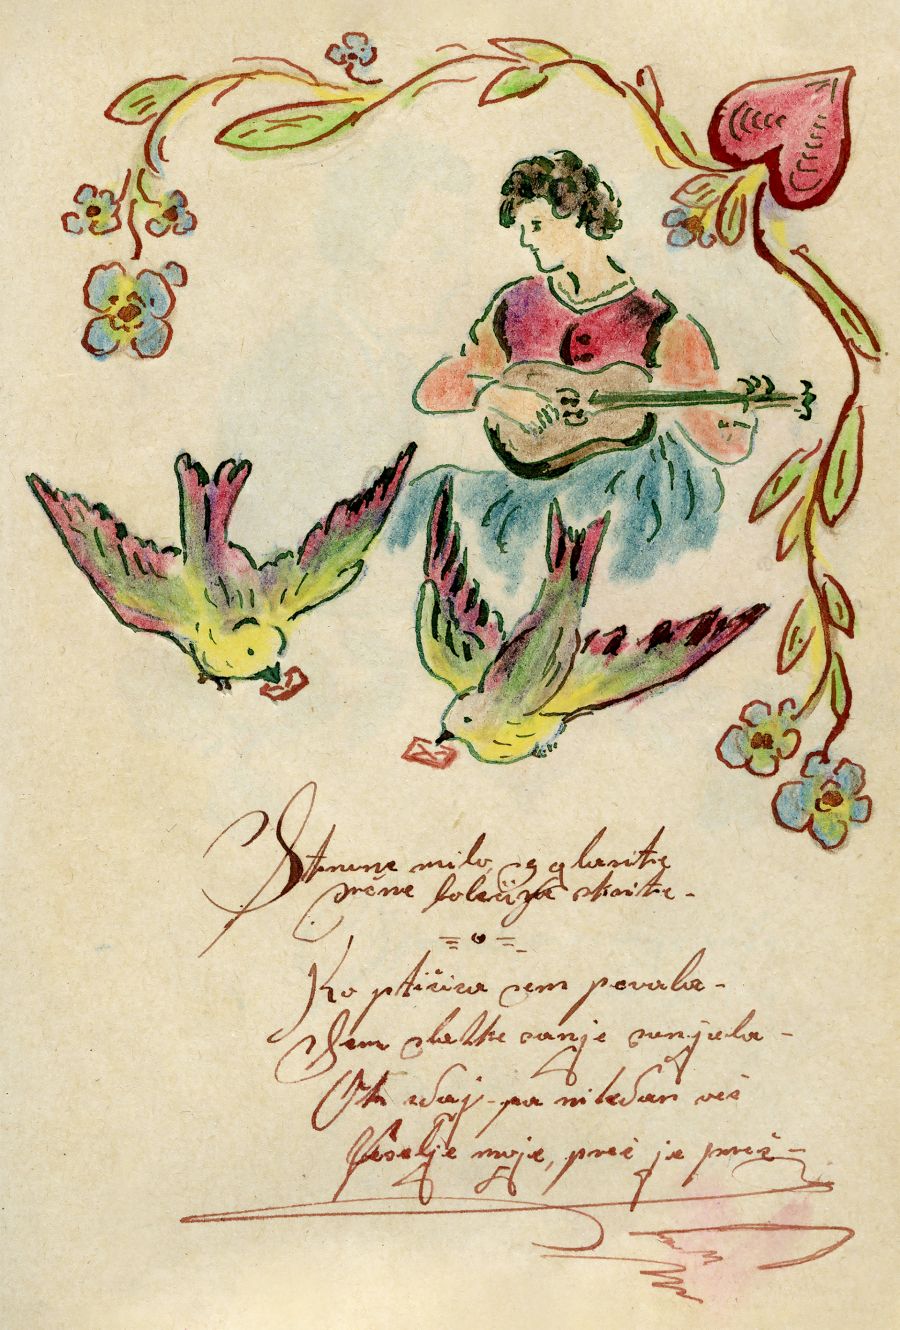 Strune milo se glasite
srčne bolečine skrite -
Ko ptičica sem pevala -
Sem slatke sanje sanjala -
Oh zdaj - pa nikdar več
Veselje moje, preč je preč -